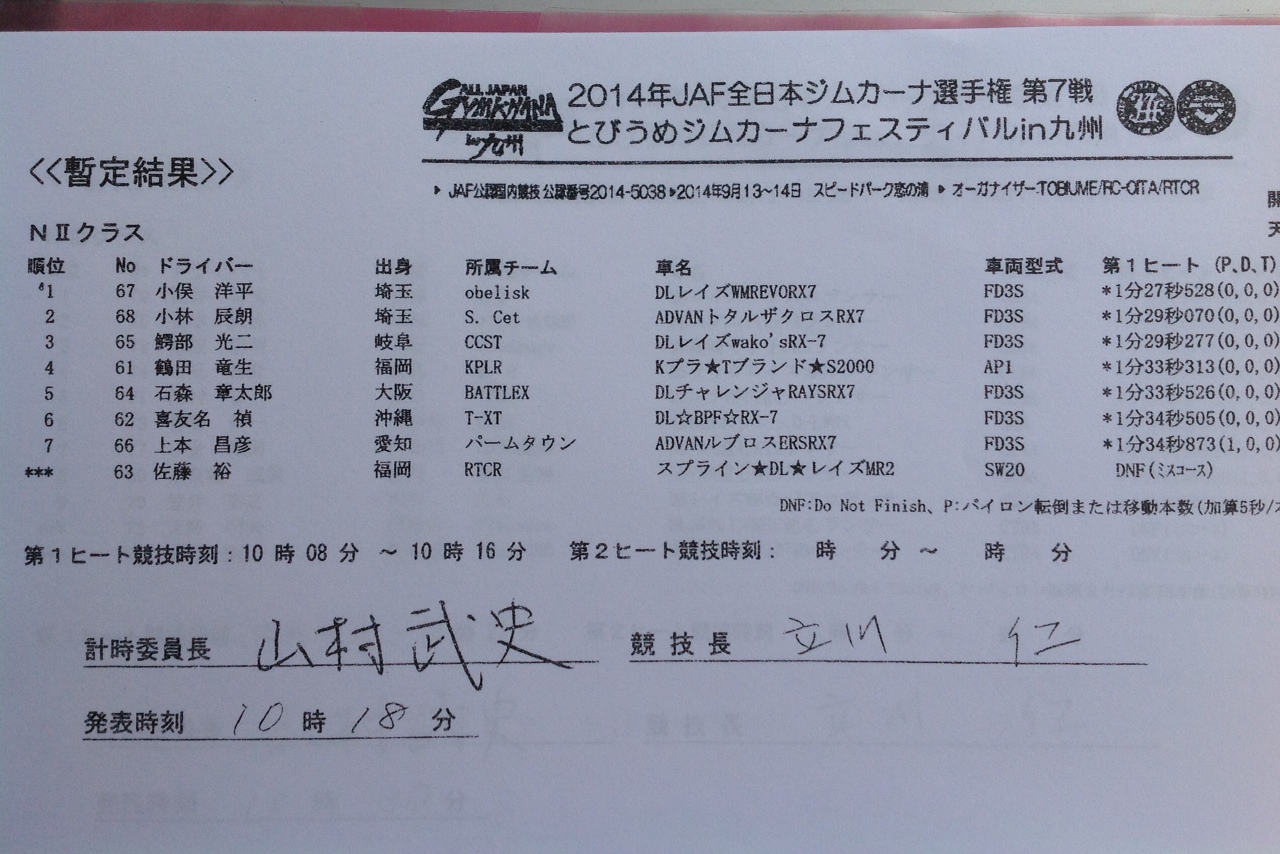 ALL JAPAN
GYMKHANA
in九州
2014年JAF全日本ジムカーナ選手権 第7戦
とびうめジムカーナフェスティバルin九州
<<暫定結果>>
JAF公認国内競技 公認番号2014-5038 2014年9月13~14日 スピードパーク恋の浦 オーガナイザー:TOBIUME/RC-OITA/RTCR
NⅡクラス
順位 No ドライバー 出身 所属チーム 車名 車両型式 第1ヒート (P,D,T)
1 67 小俣 洋平 埼玉 obelisk DLレイズWMREVORX7 FD3S *1分27秒528(0,0,0)
2 68 小林 辰朗 埼玉 S.Cet ADVANトタルザクロスRX7 FD3S *1分29秒070(0,0,0)
3 65 鰐部 光二 岐阜 CCST DLレイズwako'sRX-7 FD3S *1分29秒277(0,0,0)
4 61 鶴田 竜生 福岡 KPLR Kプラ★Tブランド★S2000 AP1 *1分33秒313(0,0,0)
5 64 石森 章太郎 大阪 BATTLEX DLチャレンジャRAYSRX7 FD3S *1分33秒526(0,0,0)
6 62 喜友名 禎 沖縄 T-XT DL☆BPF☆RX-7 FD3S *1分34秒505(0,0,0)
7 66 上本 昌彦 愛知 パームタウン ADVANルブロスERSRX7 FD3S *1分34秒873(1,0,0)
*** 63 佐藤 裕 福岡 RTCR スプライン★DL★レイズMR2 SW20 DNF(ミスコース)
DNF:Do Not Finish、P:パイロン転倒または移動本数(加算5秒/
第1ヒート競技時刻:10 時 08 分 ~ 10 時 16 分 第2ヒート競技時刻: 時 分 ~ 時 分
計時委員長 山村武史 競技長 立川 仁
発表時刻 10 時 18 分